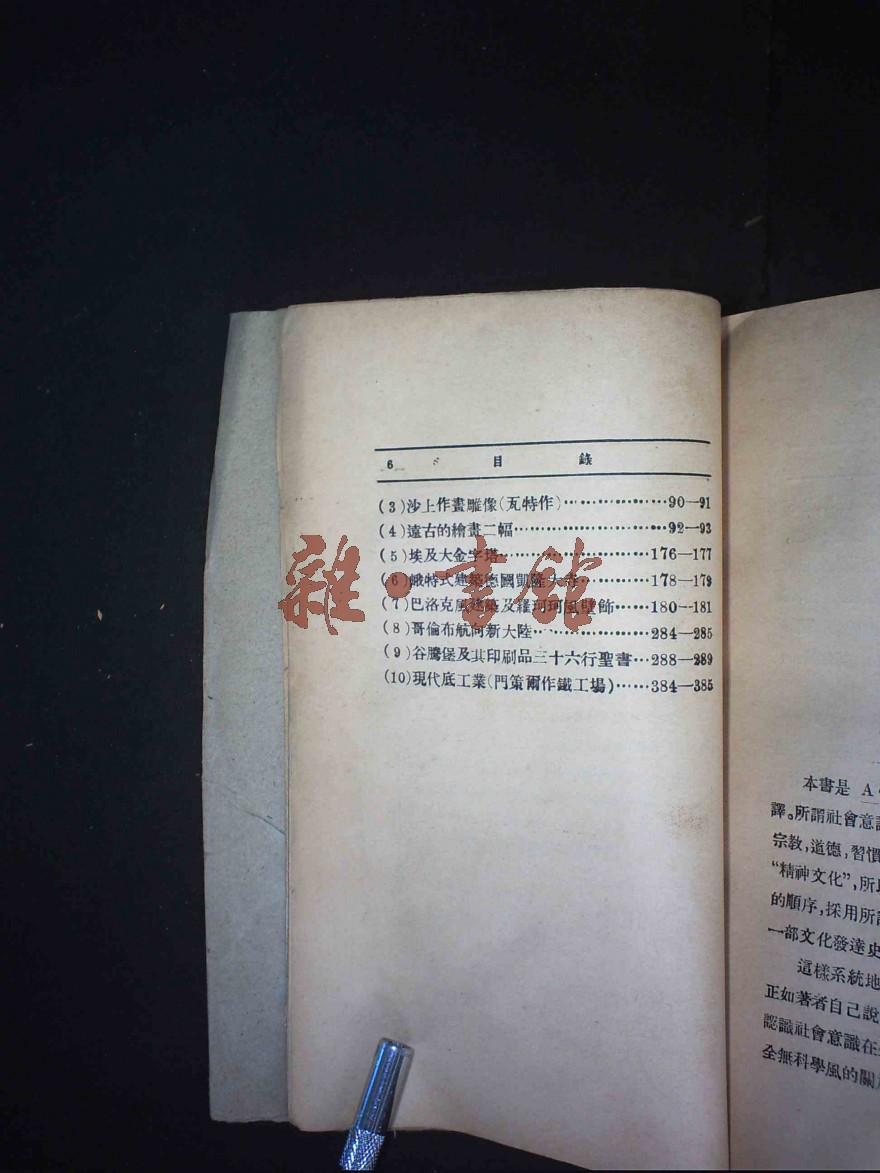 6 目錄
(3)沙上作畫雕像(瓦特作)………………90—91
(4)遠古的繪畫二幅………………92—93
(5)埃及大金字塔………………176—177
(6)峨特式建築德國凱薩大寺………178—179
(7)巴洛克風建築及羅珂珂風壁飾……180—181
(8)哥倫布航向新大陸……………284—285
(9)谷騰堡及其印刷品三十六行聖書…288—289
(10)現代底工業(門策爾作鐵工場)……384—385
雜·書館
本書是 A
譯。所謂社會意
宗教,道德,習慣
“精神文化”,所
的順序,採用所
一部文化發達史
這樣系統地
正如著者自己說
認識社會意識在
全無科學風的關